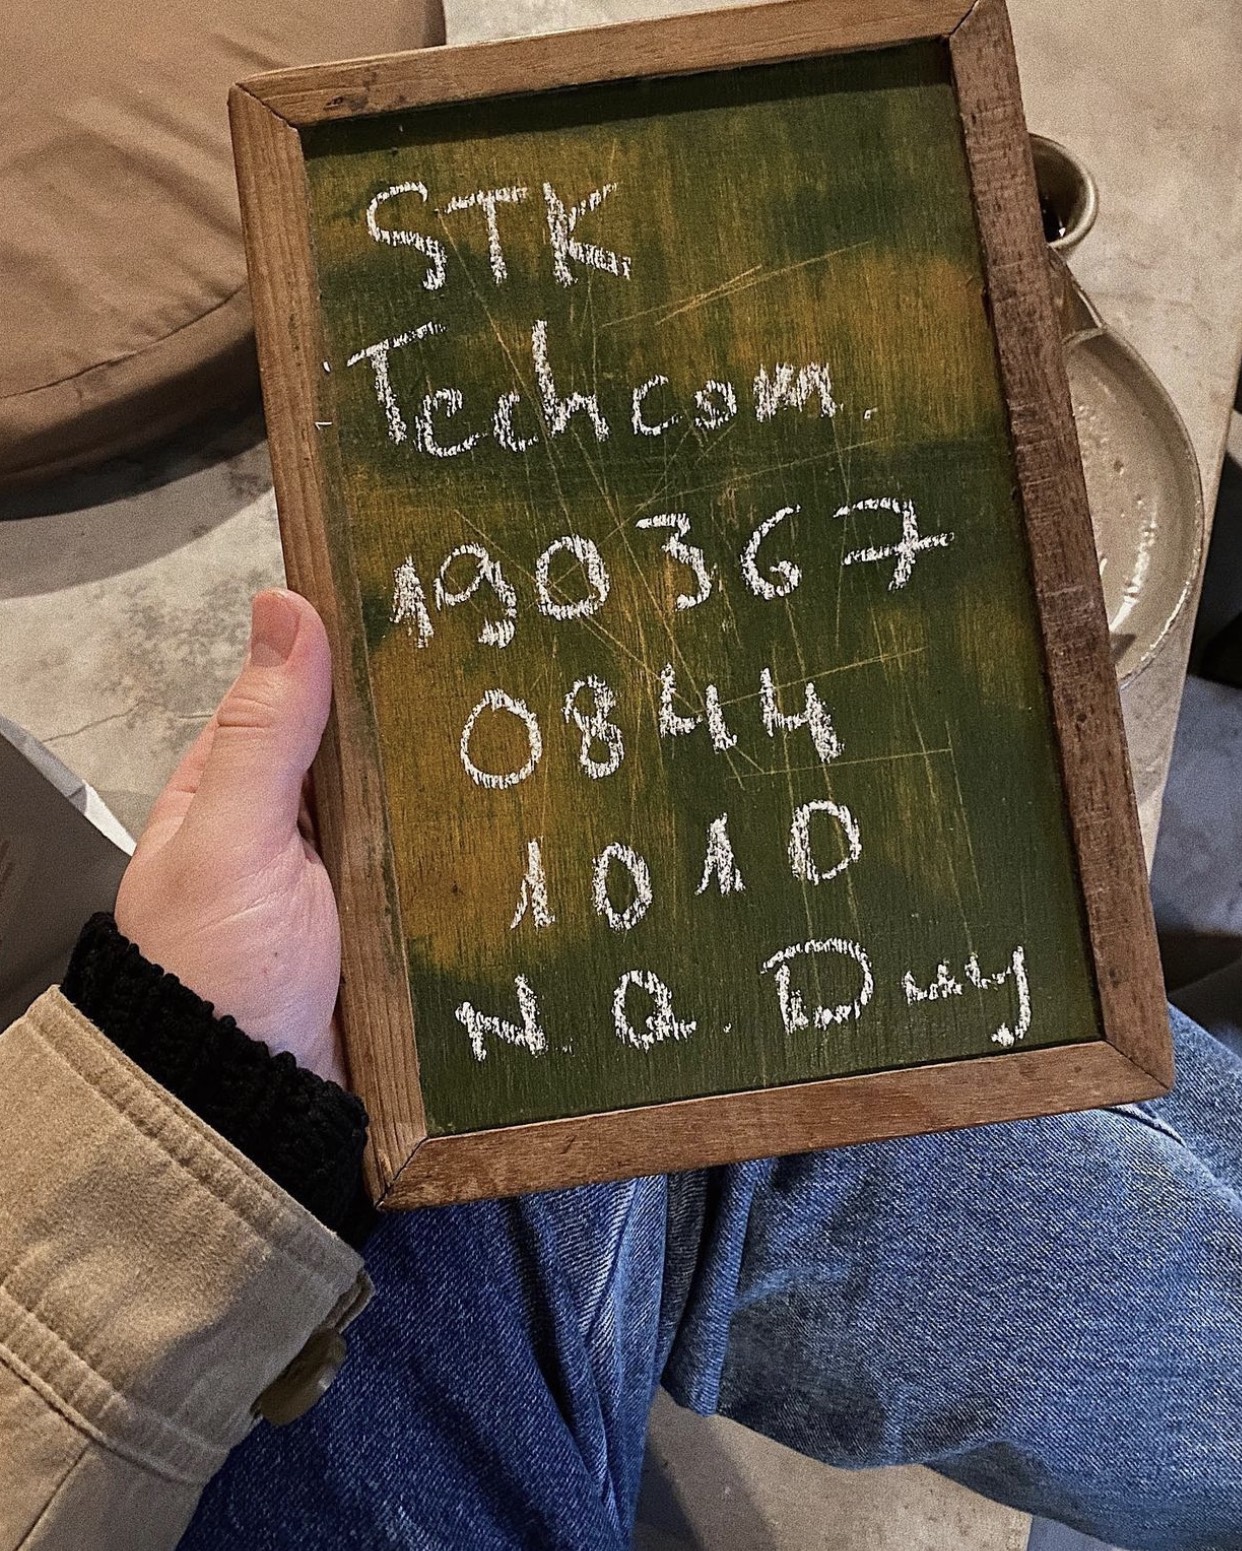 STK
Techcom.
190367
0844
1010
N. Q. Duy